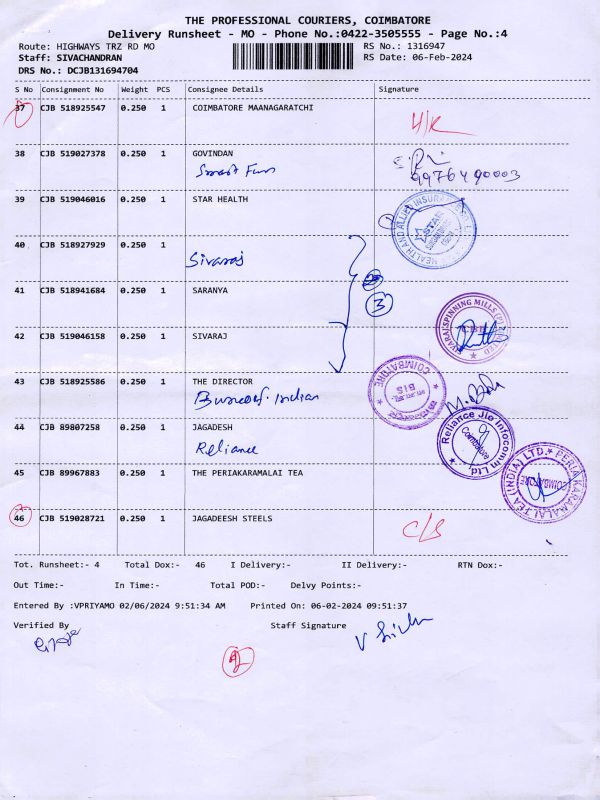 THE PROFESSIONAL COURIERS, COIMBATORE
Delivery Runsheet - MO - Phone No.:0422-3505555 - Page No.:4
Route: HIGHWAYS TRZ RD MO RS No.: 1316947
Staff: SIVACHANDRAN RS Date: 06-Feb-2024
DRS No.: DCJB131694704
S No Consignment No Weight PCS Consignee Details Signature
37 CJB 518925547 0.250 1 COIMBATORE MAANAGARATCHI
38 CJB 519027378 0.250 1 GOVINDAN
9976490003
39 CJB 519046016 0.250 1 STAR HEALTH
STAR
40 CJB 518927929 0.250 1
Sivaraj
3
41 CJB 518941684 0.250 1 SARANYA
42 CJB 519046158 0.250 1 SIVARAJ
COIMBATORE
BIS
43 CJB 518925586 0.250 1 THE DIRECTOR
44 CJB 89807258 1 JAGADESH
Reliance
Reliance Jio Infocomm Ltd
Coimbatore
45 CJB 89967883 1 THE PERIAKARAMALAI TEA
PERIA KARAMALAI TEA (INDIA) LTD.
COIMBATORE
46 CJB 519028721 0.250 1 JAGADEESH STEELS
Tot. Runsheet:- 4 Total Dox:- 46 I Delivery:- II Delivery:- RTN Dox:-
Out Time:- In Time:- Total POD:- Delvy Points:-
Entered By :VPRIYAMO 02/06/2024 9:51:34 AM Printed On: 06-02-2024 09:51:37
Verified By Staff Signature